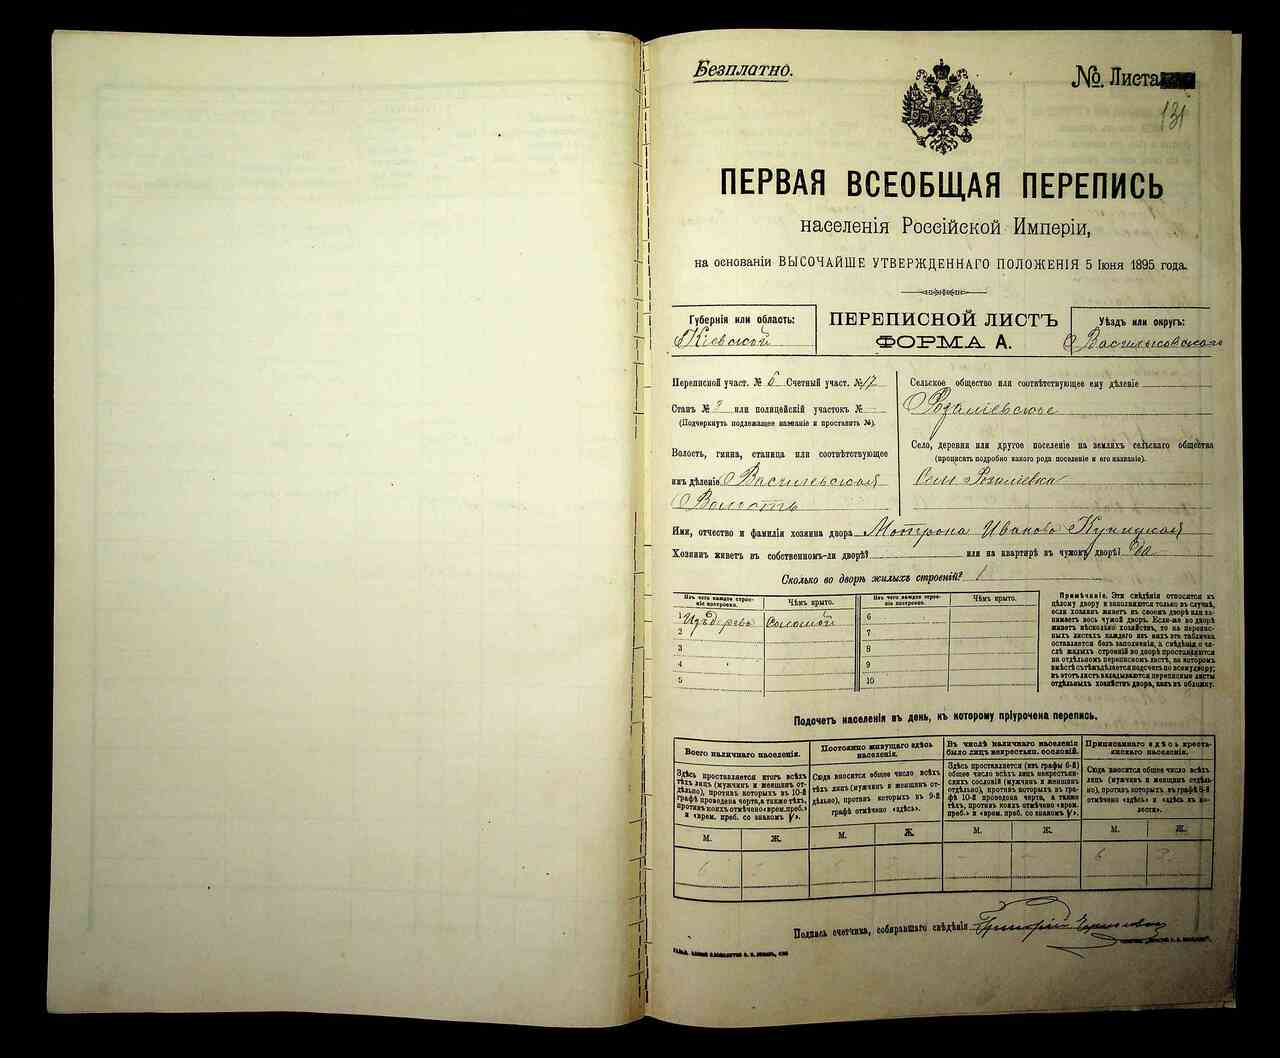 Безплатно.
№ Листа
131
ПЕРВАЯ ВСЕОБЩАЯ ПЕРЕПИСЬ
населенія Россійской Имперіи,
на основаніи ВЫСОЧАЙШЕ УТВЕРЖДЕННАГО ПОЛОЖЕНІЯ 5 Іюня 1895 года.
Губернія или область:
Кіевской
ПЕРЕПИСНОЙ ЛИСТЪ
ФОРМА А.
Уѣздъ или округъ:
Васильковскаго
Переписной участ. № 6 Счетный участ. № 17
Станъ № 3 или полицейскій участокъ №
(Подчеркнуть подлежащее названіе и проставить №).
Волость, гмина, станица или соотвѣтствующее
имъ дѣленіе Василевской
Волость
Сельское общество или соотвѣтствующее ему дѣленіе
Розаліевское
Село, деревня или другое поселеніе на земляхъ сельскаго общества
(прописать подробно какого рода поселеніе и его названіе).
Розаліевка
Имя, отчество и фамилія хозяина двора Мотрона Иванова Куницкой
Хозяинъ живетъ въ собственномъ-ли дворѣ? или на квартирѣ въ чужомъ дворѣ? да
Сколько во дворѣ жилыхъ строеній? 1
Изъ чего каждое строеніе построено.
Чѣмъ крыто.
Изъ чего каждое строеніе построено.
Чѣмъ крыто.
1 Изъ дерева Соломой 6
2 7
3 8
4 9
5 10
Примѣчаніе. Эти свѣдѣнія относятся къ
цѣлому двору и заполняются только въ случаѣ,
если хозяинъ живетъ въ своемъ дворѣ или занимаетъ
весь чужой дворъ. Если-же во дворѣ
живетъ нѣсколько хозяйствъ, то на переписныхъ
листахъ каждаго изъ нихъ эта табличка
оставляется безъ заполненія, а свѣдѣнія о числѣ
жилыхъ строеній во дворѣ проставляются
на отдѣльномъ переписномъ листѣ, на которомъ
вмѣстѣ съ тѣмъ дѣлается подсчетъ по всему двору;
въ этотъ листъ вкладываются переписные листы
отдѣльныхъ хозяйствъ двора, какъ въ обложку.
Подсчетъ населенія въ день, къ которому пріурочена перепись.
Всего наличнаго населенія.
Постоянно живущаго здѣсь населенія.
Въ числѣ наличнаго населенія было лицъ некрестьян. сословій.
Приписаннаго здѣсь крестьянскаго населенія.
Здѣсь проставляется итогъ всѣхъ
тѣхъ лицъ (мужчинъ и женщинъ отдѣльно),
противъ которыхъ въ 10-й
графѣ проведена черта, а также тѣхъ,
противъ коихъ отмѣчено «врем. преб.»
и «врем. преб. со знакомъ V».
Сюда вносится общее число всѣхъ
тѣхъ лицъ (мужчинъ и женщинъ отдѣльно),
противъ которыхъ въ 9-й
графѣ отмѣчено «здѣсь».
Здѣсь проставляется (изъ графы 6-й)
общее число всѣхъ лицъ некрестьянскихъ
сословій (мужчинъ и женщинъ
отдѣльно), противъ которыхъ въ графѣ
10-й проведена черта, а также
тѣхъ, противъ коихъ отмѣчено «врем.
преб.» и «врем. преб. со знакомъ V».
Сюда вносится общее число всѣхъ
лицъ (мужчинъ и женщинъ отдѣльно),
противъ которыхъ въ графѣ 8-й
отмѣчено «здѣсь» и «здѣсь въ волости».
М. Ж. М. Ж. М. Ж. М. Ж.
6 6 3 – – 6 3
Подпись счетчика, собиравшаго свѣдѣнія Григорій